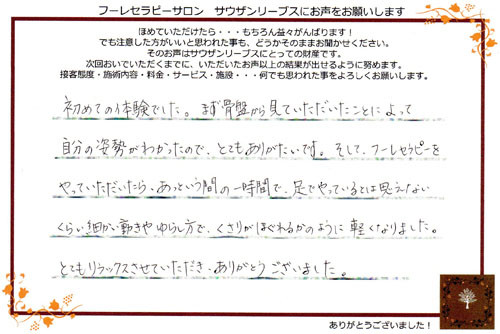 フーレセラピーサロン　サウザンリーブスにお声をお願いします
ほめていただけたら・・・もちろん益々がんばります！
でも注意した方がいいと思われた事も、どうかそのままお聞かせください。
そのお声はサウザンリーブスにとっての財産です。
次回おいでいただくまでに、いただいたお声以上の結果が出せるように努めます。
接客態度・施術内容・料金・サービス・施設・・・何でも思われた事をよろしくお願いします。
初めての体験でした。まず骨盤から見ていただいたことによって
自分の姿勢がわかったので、とてもありがたいです。そして、フーレセラピーを
やっていただいたら、あっという間の一時間で、足でやっているとは思えない
くらい細かい動きやゆらし方で、くさりがほぐれるかのように軽くなりました。
とてもリラックスさせていただき、ありがとうございました。
ありがとうございました！